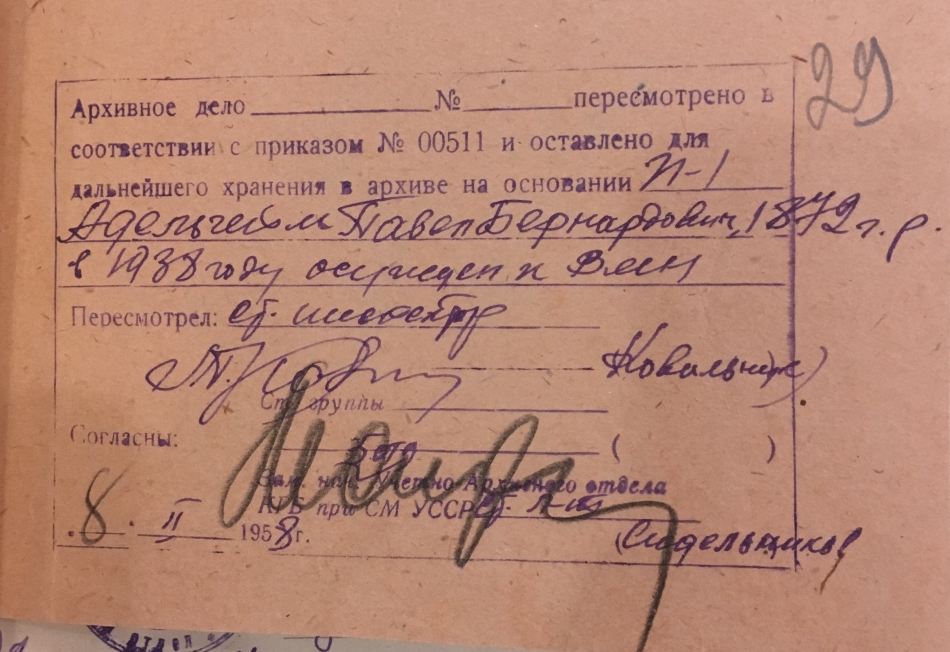 29
Архивное дело № пересмотрено в
соответствии с приказом № 00511 и оставлено для
дальнейшего хранения в архиве на основании П-1
Адельгейм Павел Бернардович, 1872 г. р.
в 1938 году осужден к Вмн
Пересмотрел: ст.
Ковальчук)
Ст. группы
Согласны: ( )
Зам. нач. Учетно-Архивного отдела
КГБ при СМ УССР
8. II 1958 г.
(Сидельников)
ОТДЕЛ